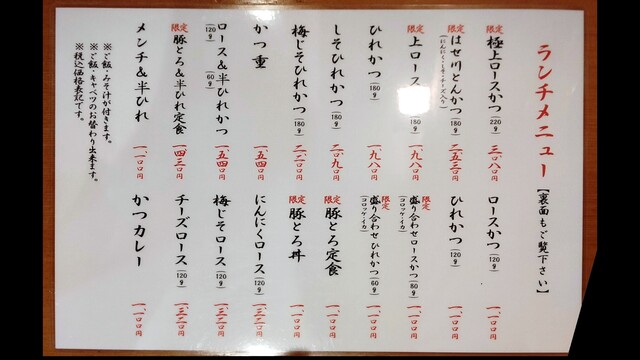 ランチメニュー【裏面もご覧下さい】
限定 極上ロースかつ(220g) 三、〇八〇円
限定 はせ川とんかつ(180g) 二、五三〇円
(にんにく・しそ・チーズ入り)
限定 上ロース(180g) 一、九八〇円
ひれかつ(180g) 一、九八〇円
しそひれかつ(180g) 二、〇九〇円
梅じそひれかつ(180g) 二、二〇〇円
かつ重 一、五四〇円
ロース&半ひれかつ 一、五四〇円
(120g) (60g)
限定 豚とろ&半ひれ定食 一、四三〇円
メンチ&半ひれ 一、一〇〇円
ロースかつ(120g) 一、一〇〇円
ひれかつ(120g) 一、一〇〇円
限定 盛り合わせロースかつ(80g) 一、一〇〇円
(コロッケ・イカ)
限定 盛り合わせひれかつ(60g) 一、一〇〇円
(コロッケ・イカ)
限定 豚とろ定食 一、一〇〇円
限定 豚とろ丼 一、一〇〇円
にんにくロース(120g) 一、三二〇円
梅じそロース(120g) 一、三二〇円
チーズロース(120g) 一、三二〇円
かつカレー 一、一〇〇円
※ご飯・みそ汁が付きます。
※ご飯・キャベツのお替わり出来ます。
※税込価格表記です。